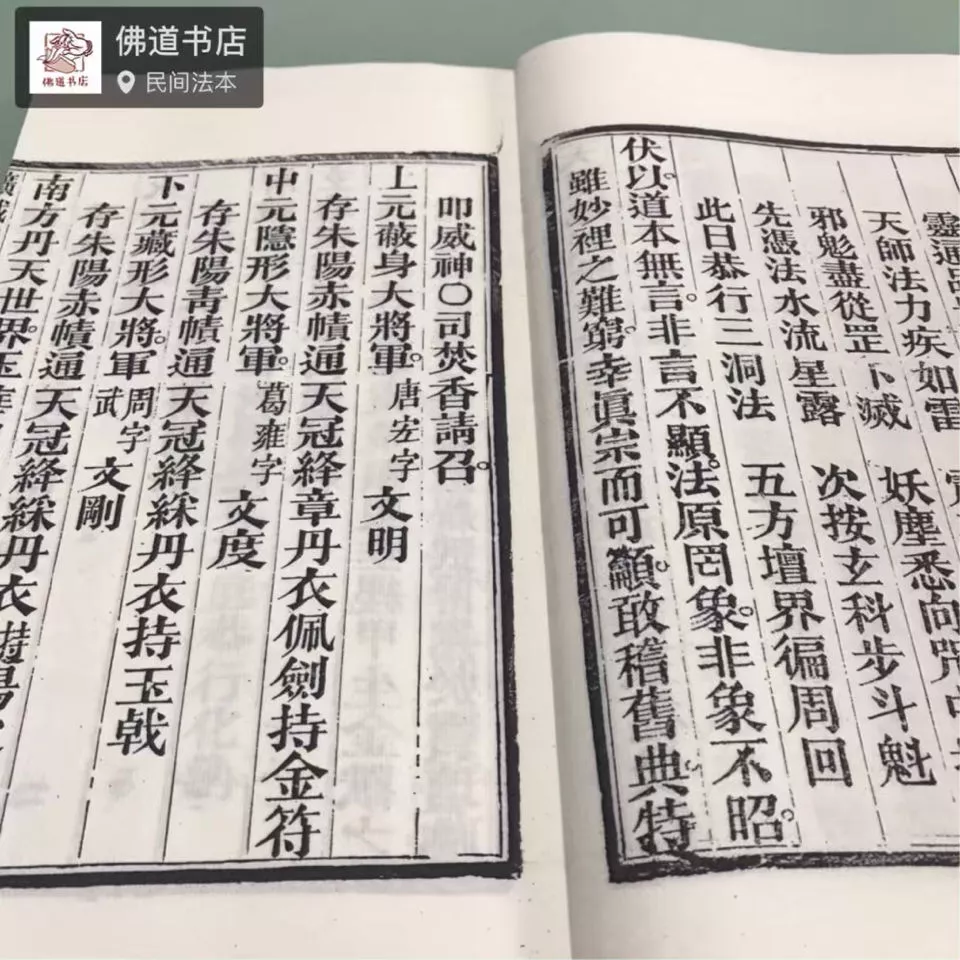 佛道书店
佛道书店
民间法本
靈通品
天師法力疾如雷
邪魁盡從罡下滅　妖塵悉向咒中
先憑法水流星露　次按玄科步斗魁
此日恭行三洞法　五方壇界徧周回
伏以道本無言。非言不顯。法原罔象。非象不昭。
雖妙裡之難窮。幸眞宗而可籲。敢稽舊典特
叩威神○司焚香請召。
上元蔽身大將軍。唐宏字文明
存朱陽赤幘通天冠絳章丹衣佩劍持金符
中元隱形大將軍。葛雍字文度
存朱陽青幘通天冠絳綵丹衣持玉戟
下元藏形大將軍。周武字文剛
存朱陽赤幘通天冠絳綵丹衣
南方丹天世界。玉